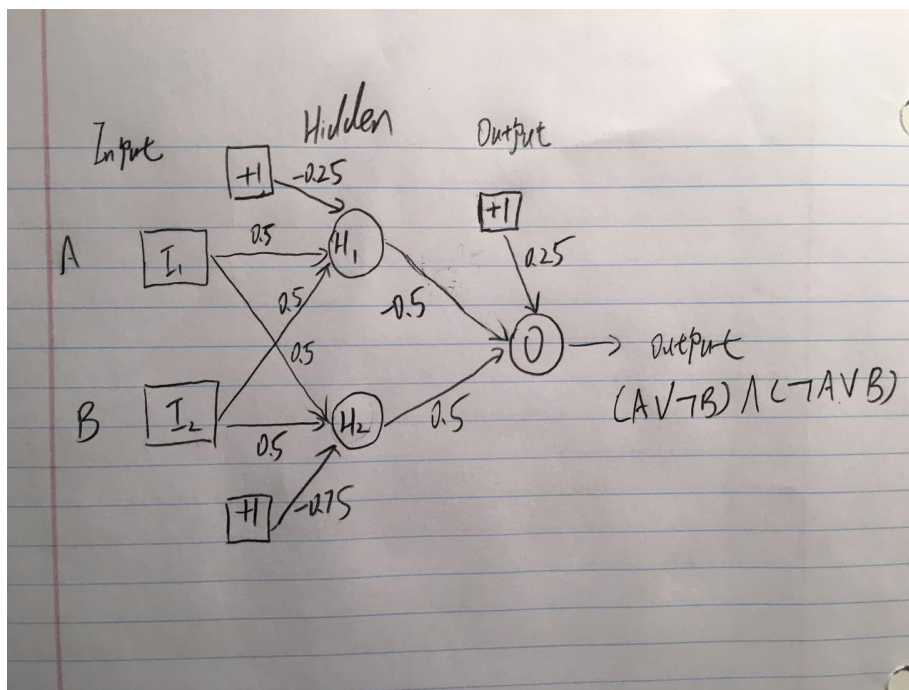 Input Hidden Output
+1 -0.25
+1
A I₁ 0.5 H₁ 0.25
0.5 -0.5
0.5 O → output
B I₂ 0.5 H₂ 0.5 (A∨¬B)∧(¬A∨B)
+1 -0.75